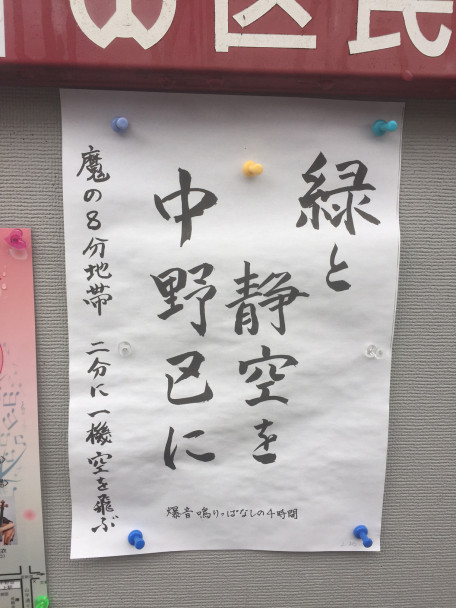 区民
緑と
静空を
中野区に
魔の8分地帯 二分に一機空を飛ぶ
爆音鳴りっぱなしの4時間